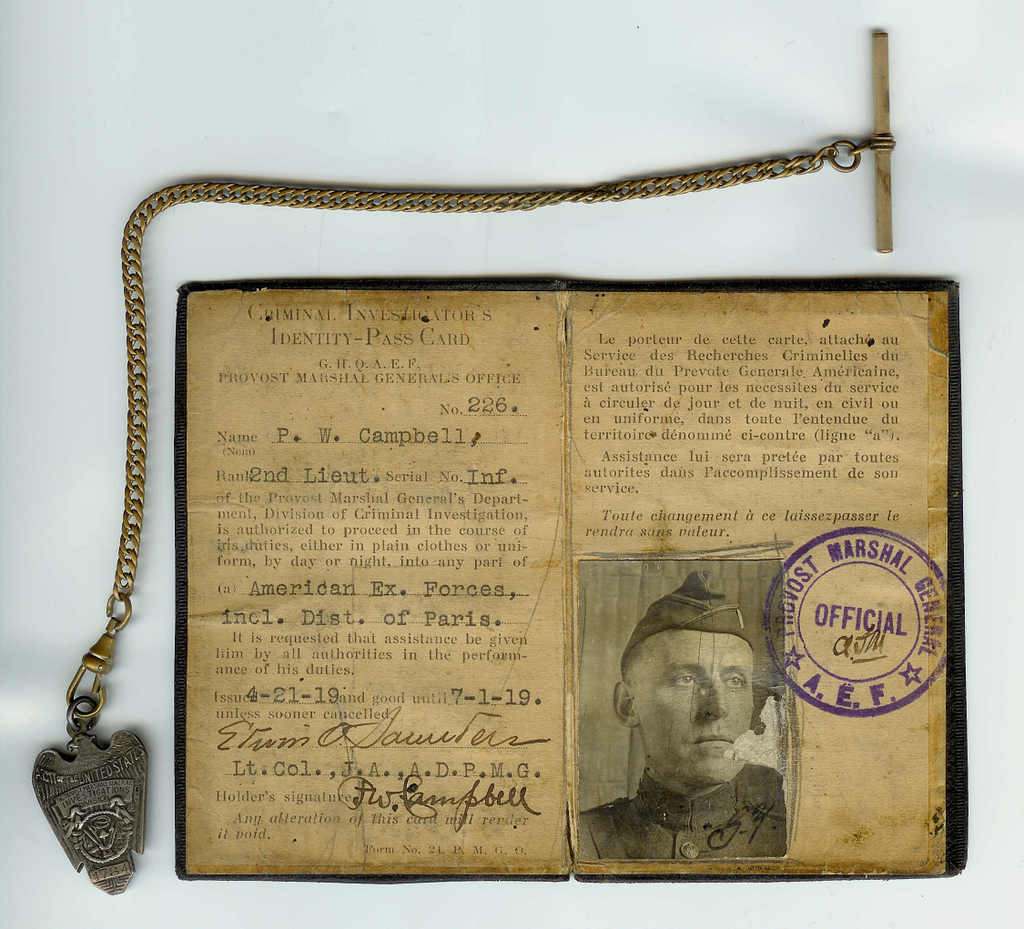 CRIMINAL INVESTIGATOR'S
IDENTITY-PASS CARD
G. H. Q. A. E. F.
PROVOST MARSHAL GENERAL'S OFFICE
No. 226.
Name P. W. Campbell,
(Nom)
Rank 2nd Lieut. Serial No. Inf.
of the Provost Marshal General's Depart-
ment, Division of Criminal Investigation,
is authorized to proceed in the course of
his duties, either in plain clothes or uni-
form, by day or night, into any part of
(a) American Ex. Forces,
incl. Dist. of Paris.
It is requested that assistance be given
him by all authorities in the perform-
ance of his duties.
Issued 4-21-19 and good until 7-1-19.
unless sooner cancelled
Edwin O Saunders
Lt. Col., J.A., A.D.P.M.G.
Holder's signature P.W. Campbell
Any alteration of this card will render
it void.
Form No. 24. P. M. G. O.
Le porteur de cette carte, attaché au
Service des Recherches Criminelles du
Bureau du Prevote Generale Américaine,
est autorisé pour les necessites du service
à circuler de jour et de nuit, en civil ou
en uniforme, dans toute l'entendue du
territoire dénommé ci-contre (ligne "a").
Assistance lui sera pretée par toutes
autorites dans l'accomplissement de son
service.
Toute changement à ce laissezpasser le
rendra sans valeur.
PROVOST MARSHAL GENERAL
OFFICIAL
A. E. F.
UNITED STATES